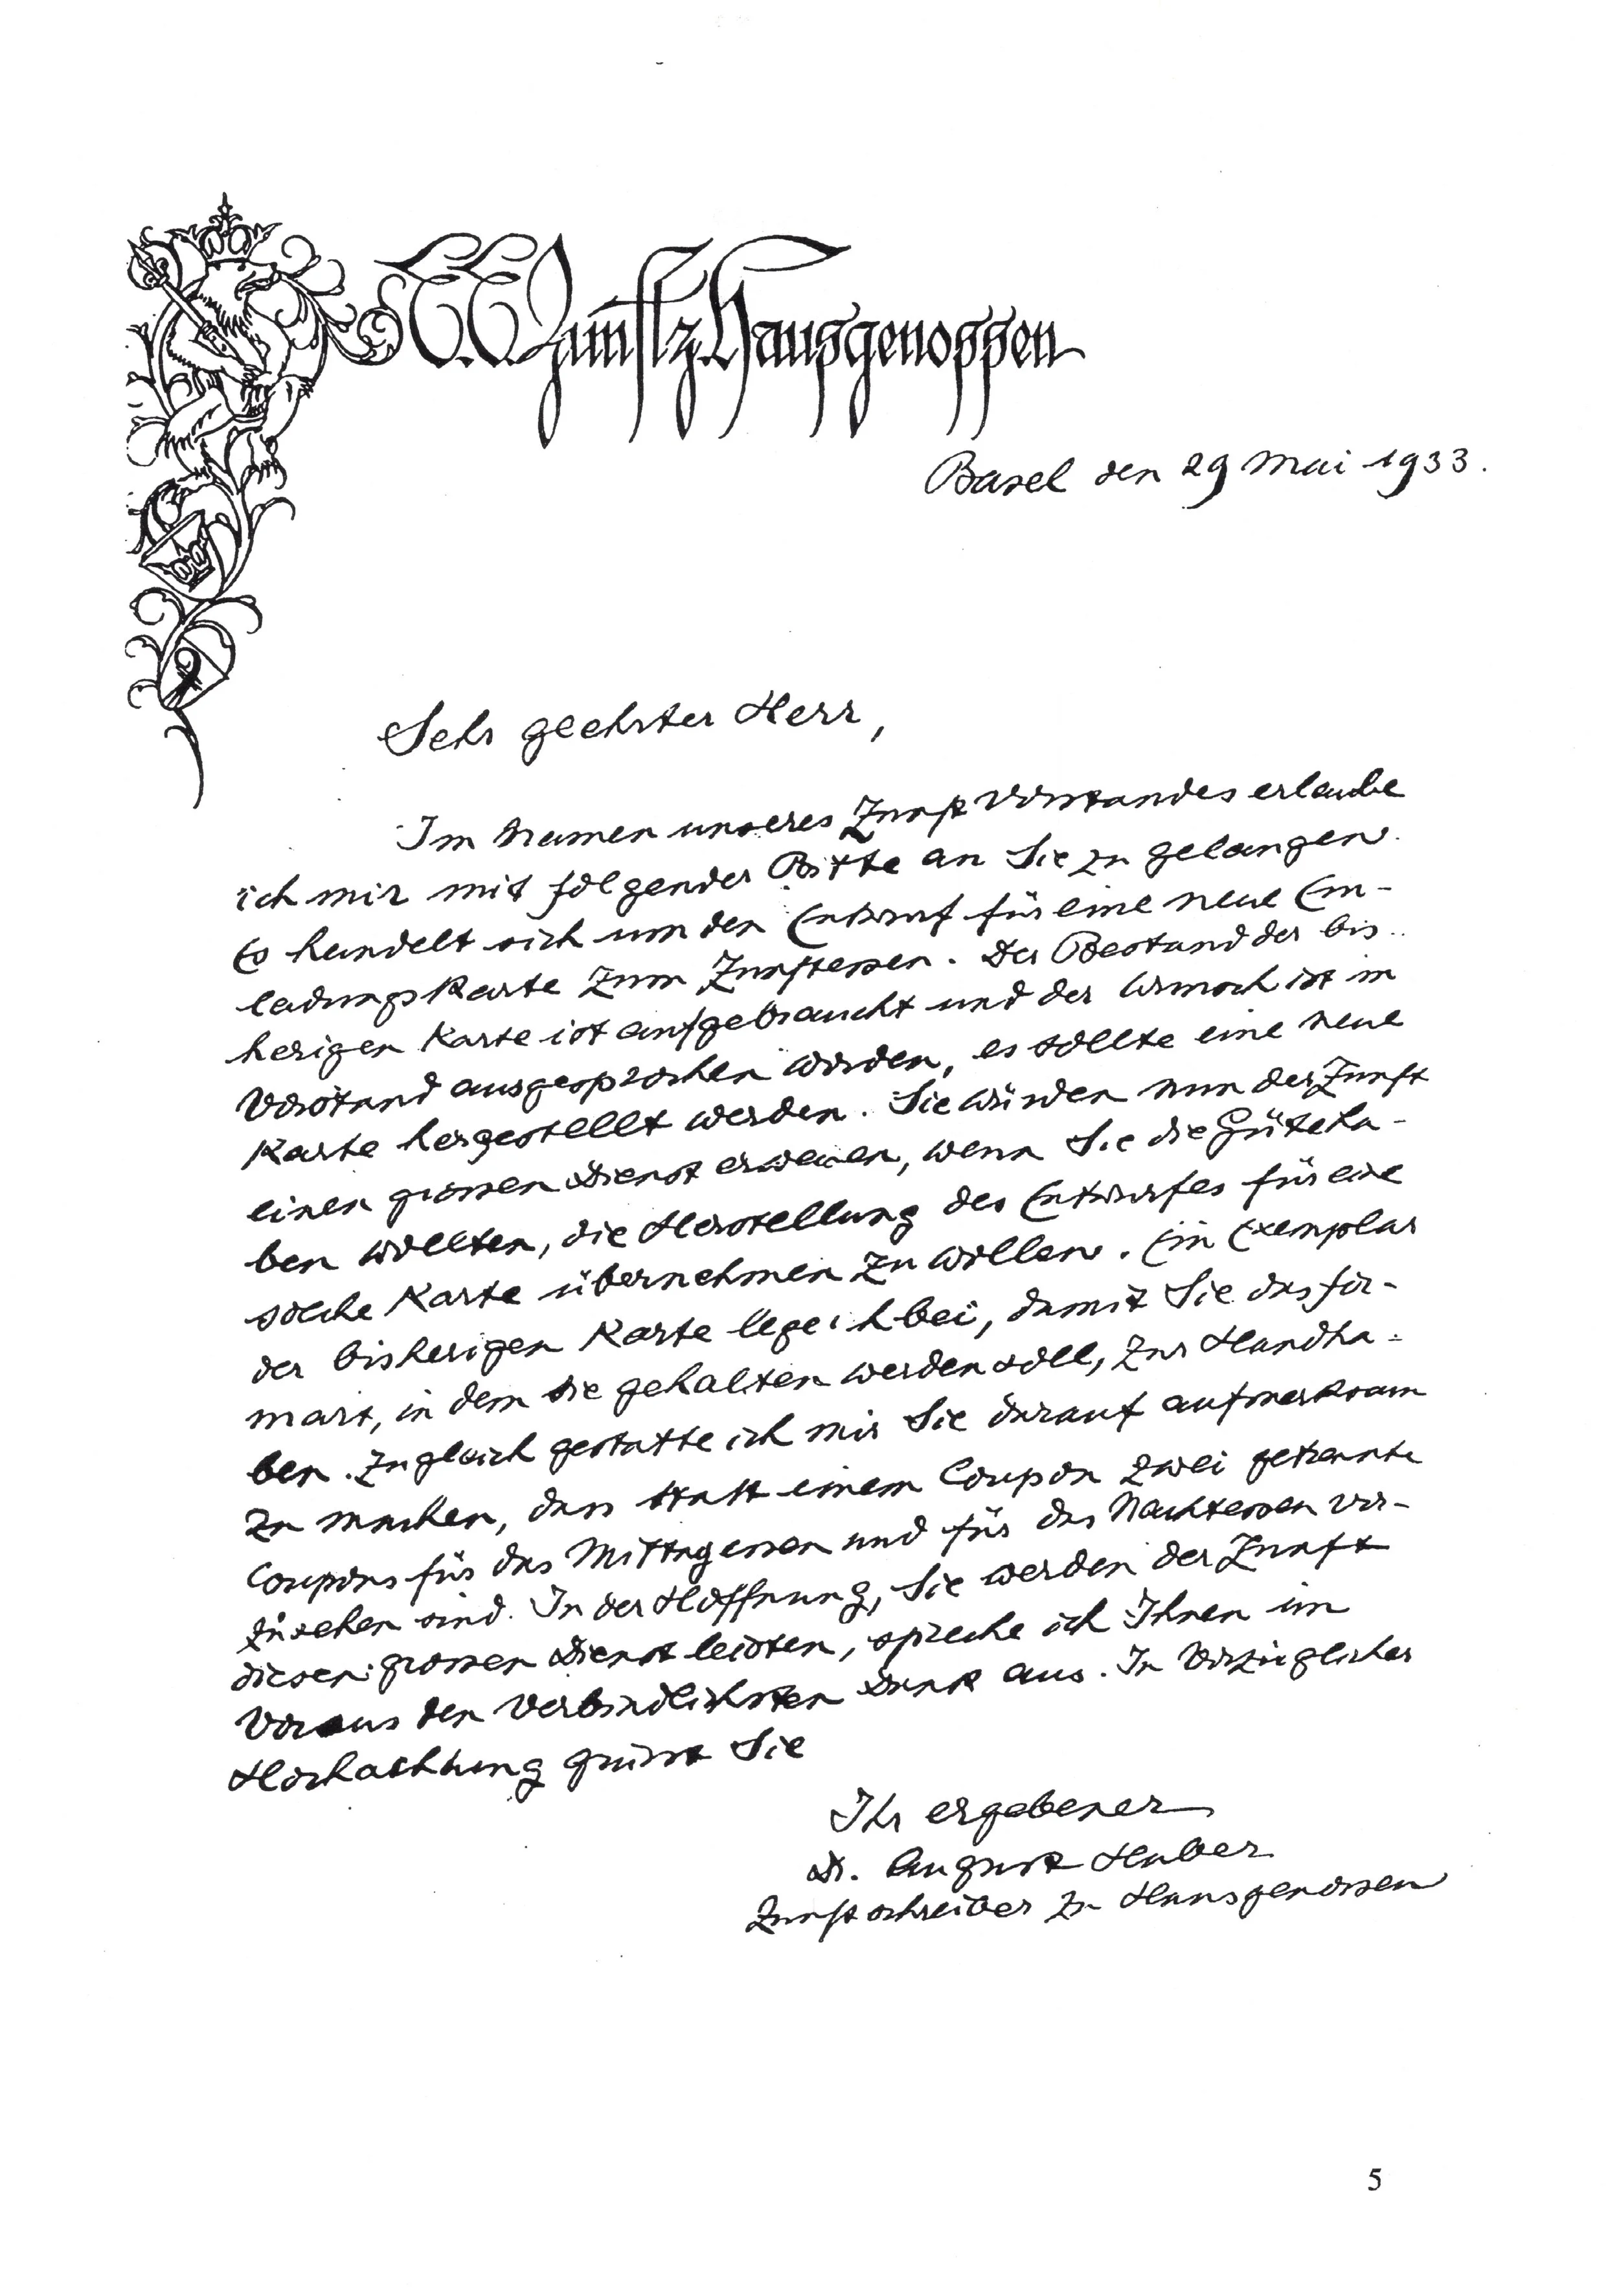 E.E. Zunft z. Hausgenossen
Basel den 29 Mai 1933.
Sehr geehrter Herr,
Im Namen unseres Zunftvorstandes erlaube
ich mir mit folgender Bitte an Sie zu gelangen.
Es handelt sich um den Entwurf für eine neue Ein-
ladungskarte zum Zunftessen. Der Bestand der bis-
herigen Karte ist aufgebraucht und der Wunsch ist im
Vorstand ausgesprochen worden, es sollte eine neue
Karte hergestellt werden. Sie würden nun der Zunft
einen grossen Dienst erweisen, wenn Sie die Güte ha-
ben wollten, die Herstellung des Entwurfes für eine
solche Karte übernehmen zu wollen. Ein Exemplar
der bisherigen Karte lege ich bei, damit Sie das for-
mart, in dem sie gehalten werden soll, zur Hand ha-
ben. Zugleich gestatte ich mir Sie darauf aufmerksam
zu machen, dass statt einem Coupon zwei getrennte
Coupons für das Mittagessen und für das Nachtessen vor-
zusehen sind. In der Hoffnung, Sie werden der Zunft
diesen grossen Dienst leisten, spreche ich Ihnen im
Voraus den verbindlichsten Dank aus. In vorzüglicher
Hochachtung grüsst Sie
Ihr ergebener
Dr. August Huber
Zunftschreiber zu Hausgenossen
5